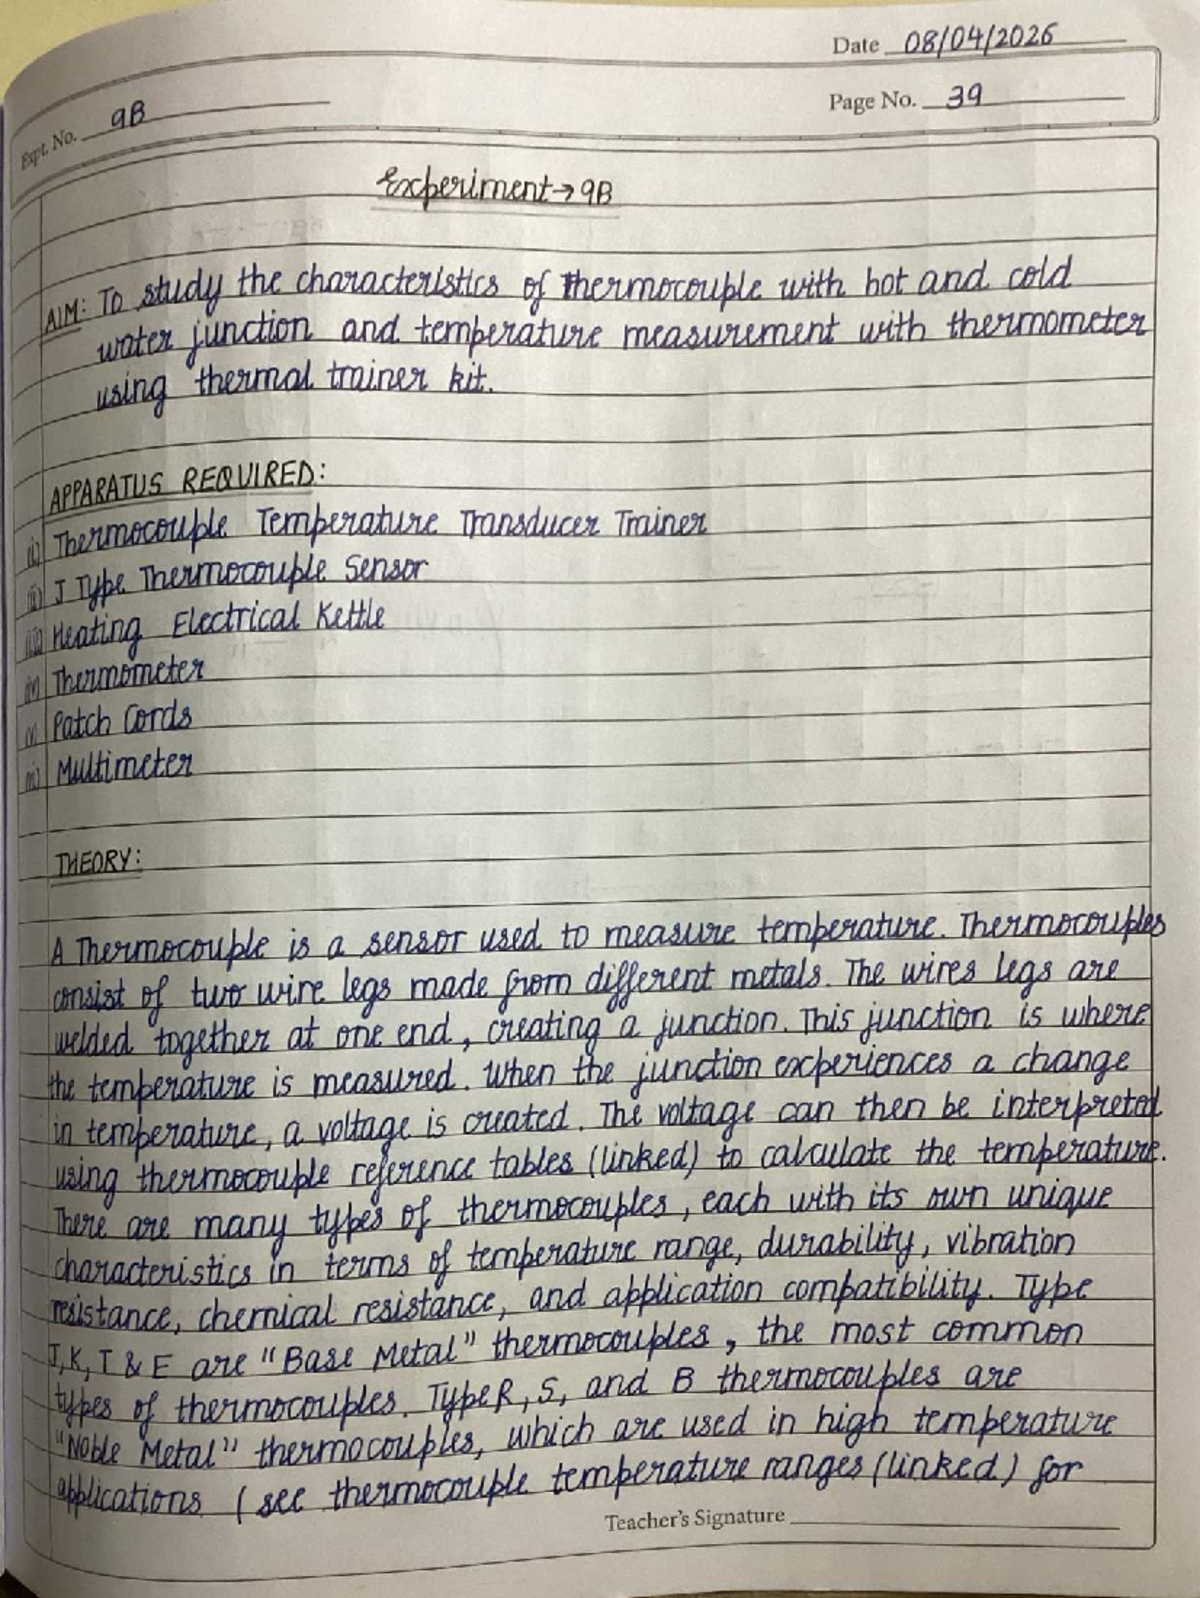 Date 08/04/2026
Expt. No. 9B
Page No. 39
Experiment → 9B
AIM: To study the characteristics of thermocouple with hot and cold
water junction and temperature measurement with thermometer
using thermal trainer kit.
APPARATUS REQUIRED:
(i) Thermocouple Temperature Transducer Trainer
(ii) J Type Thermocouple Sensor
(iii) Heating Electrical Kettle
(iv) Thermometer
(v) Patch Cords
(vi) Multimeter
THEORY:
A Thermocouple is a sensor used to measure temperature. Thermocouples
consist of two wire legs made from different metals. The wires legs are
welded together at one end, creating a junction. This junction is where
the temperature is measured. When the junction experiences a change
in temperature, a voltage is created. The voltage can then be interpreted
using thermocouple reference tables (linked) to calculate the temperature.
There are many types of thermocouples, each with its own unique
characteristics in terms of temperature range, durability, vibration
resistance, chemical resistance, and application compatibility. Type
J, K, T & E are "Base Metal" thermocouples, the most common
types of thermocouples. Type R, S, and B thermocouples are
"Noble Metal" thermocouples, which are used in high temperature
applications (see thermocouple temperature ranges (linked) for
Teacher's Signature